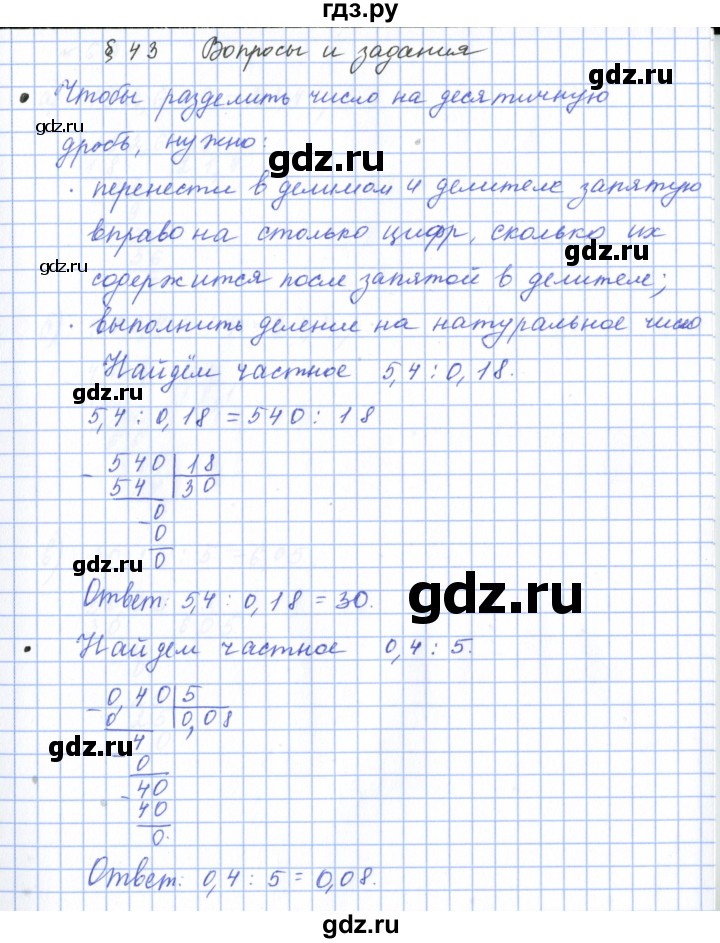 гдз.ру
§ 43 Вопросы и задания
gdz.ru
• Чтобы разделить число на десятичную
gdz.ru
дробь, нужно:
gdz.ru
· перенести в делимом и делителе запятую
вправо на столько цифр, сколько их
gdz.ru
gdz.ru
содержится после запятой в делителе;
· выполнить деление на натуральное число
Найдём частное 5,4 : 0,18.
gdz.ru
5,4 : 0,18 = 540 : 18
- 540 | 18
54 | 30
- 0
0
0
gdz.ru
gdz.ru
Ответ: 5,4 : 0,18 = 30.
• Найдем частное 0,4 : 5.
- 0,40 | 5
0 | 0,08
gdz.ru
gdz.ru
- 4
0
- 40
40
0.
Ответ: 0,4 : 5 = 0,08.
gdz.ru